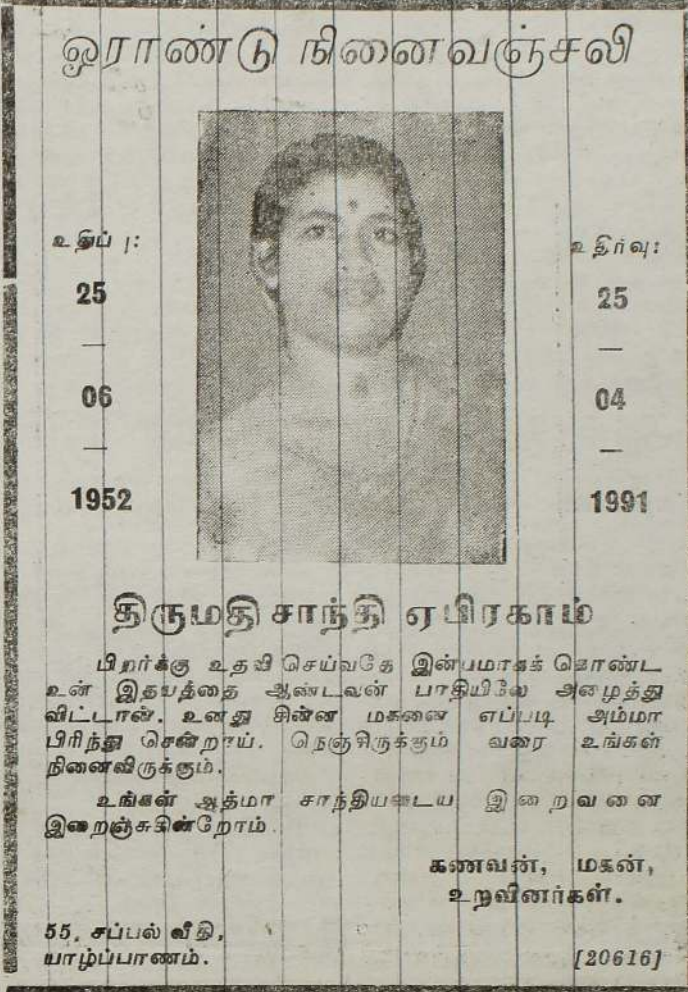 ஓராண்டு நினைவஞ்சலி
உதிப்பு:
25
—
06
—
1952
உதிர்வு:
25
—
04
—
1991
திருமதி சாந்தி ஏபிரகாம்
பிறர்க்கு உதவி செய்வதே இன்பமாகக் கொண்ட
உன் இதயத்தை ஆண்டவன் பாதியிலே அழைத்து
விட்டான். உனது சின்ன மகனை எப்படி அம்மா
பிரிந்து சென்றாய். நெஞ்சிருக்கும் வரை உங்கள்
நினைவிருக்கும்.
உங்கள் ஆத்மா சாந்தியடைய இறைவனை
இறைஞ்சுகின்றோம்.
கணவன், மகன்,
உறவினர்கள்.
55, சப்பல் வீதி,
யாழ்ப்பாணம்.
[20616]